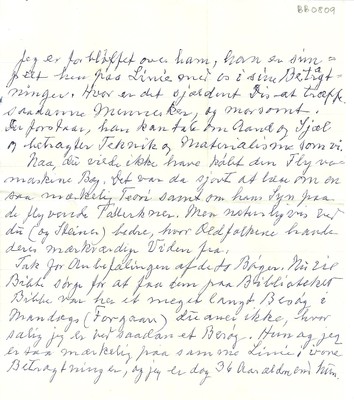 BR0809
Jeg er forbløffet over ham, han er sim=
pelt hen paa Linie med os i sine Betragt=
ninger. Hvor er det sjældent Du at træffe
saadanne Mennesker, og morsomt.
Du forstaar, han kan tale om Aand og Sjæl
og betragter Teknik og Materialisme som vi.
Naa, du vilde ikke have købt den Flyve
maskine Bog. Det var da sjovt at læse om en
saa mærkelig Teori samt om hans Syn paa
de flyvende Tallerkner. Men naturligvis ved
du (og Steiner) bedre, hvor Oldfolkene havde
deres mærkværdige Viden fra.
Tak for Anbefalingen af de to Bøger. Nu vil
Bibbe sørge for at faa dem paa Biblioteket
Bibbe var her et meget langt Besøg i
Mandags (Forgaars) du aner ikke, hvor
salig jeg er ved saadan et Besøg. Hun og jeg
er saa mærkelig paa samme Linie i vore
Betragtninger, og jeg er dog 36 Aar ældre end hun.